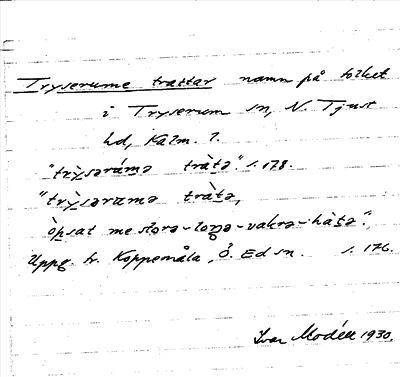 Tryserume trattar namn på folket
i Tryserum sn, N. Tjust
hd, Kalm. l.
"trỳsərámə tràtə". s. 178.
"trỳsərumə tràtə,
òpsat me stora-loŋa-vakra-hàtə".
Uppg. fr. Koppemåla, Ö. Ed sn. s. 176.
Ivar Modéer 1930.